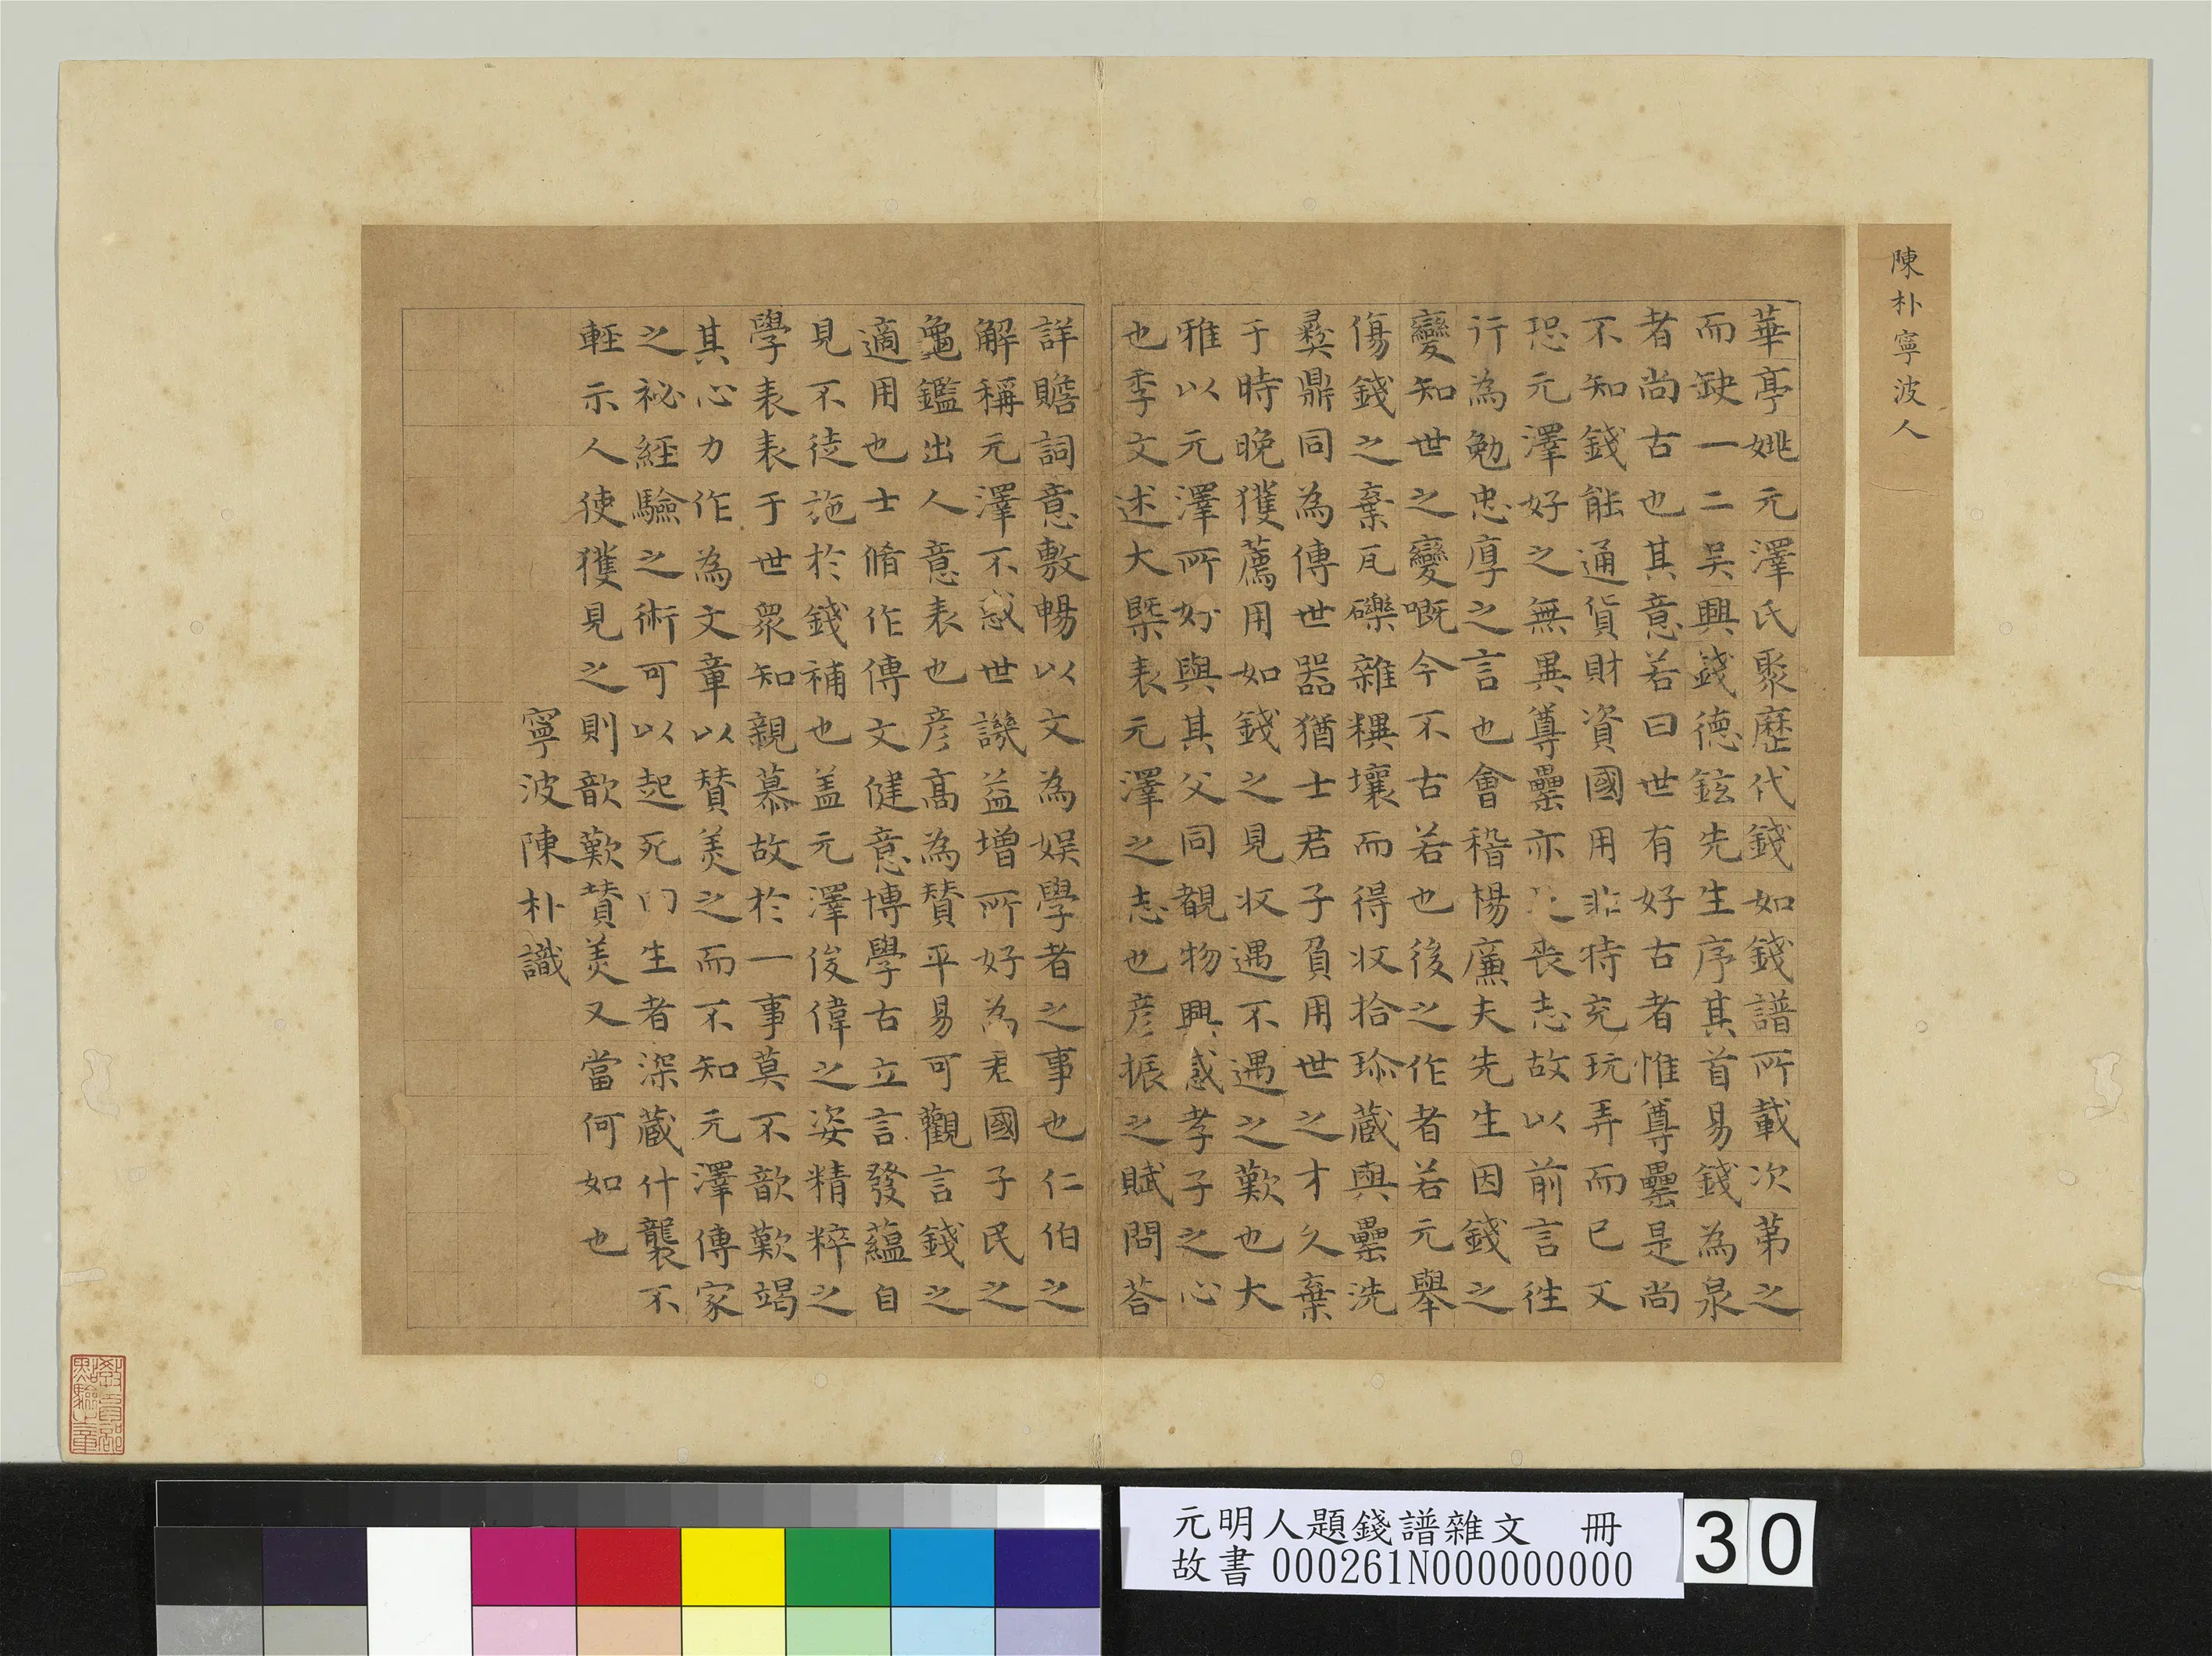 陳朴寧波人
華亭姚元澤氏聚歷代錢如錢譜所載次苐之
而缺一二吴興錢德鉉先生序其首易錢為泉
者尚古也其意若曰世有好古者惟尊罍是尚
不知錢能通貨財資國用非特充玩弄而已又
恐元澤好之無異尊罍亦喪志故以前言徃
行為勉忠厚之言也會稽楊廉夫先生因錢之
變知世之變嘅今不古若也後之作者若元舉
傷錢之棄瓦礫雜糞壤而得收拾珍藏與罍洗
彛鼎同為傳世器猶士君子負用世之才久棄
于時晚獲薦用如錢之見收遇不遇之歎也大
雅以元澤所好與其父同覩物興感孝子之心
也季文述大槩表元澤之志也彦振之賦問荅
詳贍詞意敷暢以文為娱學者之事也仁伯之
解稱元澤不惑世譏益增所好為君國子民之
龜鑑出人意表也彦高為賛平易可觀言錢之
適用也士脩作傳文健意博學古立言發藴自
見不徒施於錢補也盖元澤俊偉之姿精粹之
學表表于世衆知親慕故於一事莫不歆歎竭
其心力作為文章以賛羙之而不知元澤傳家
之祕經驗之術可以起死回生者深藏什襲不
輕示人使獲見之則歆歎賛羙又當何如也
寧波陳朴識
元明人題錢譜雜文 冊
故書 000261N000000000
30